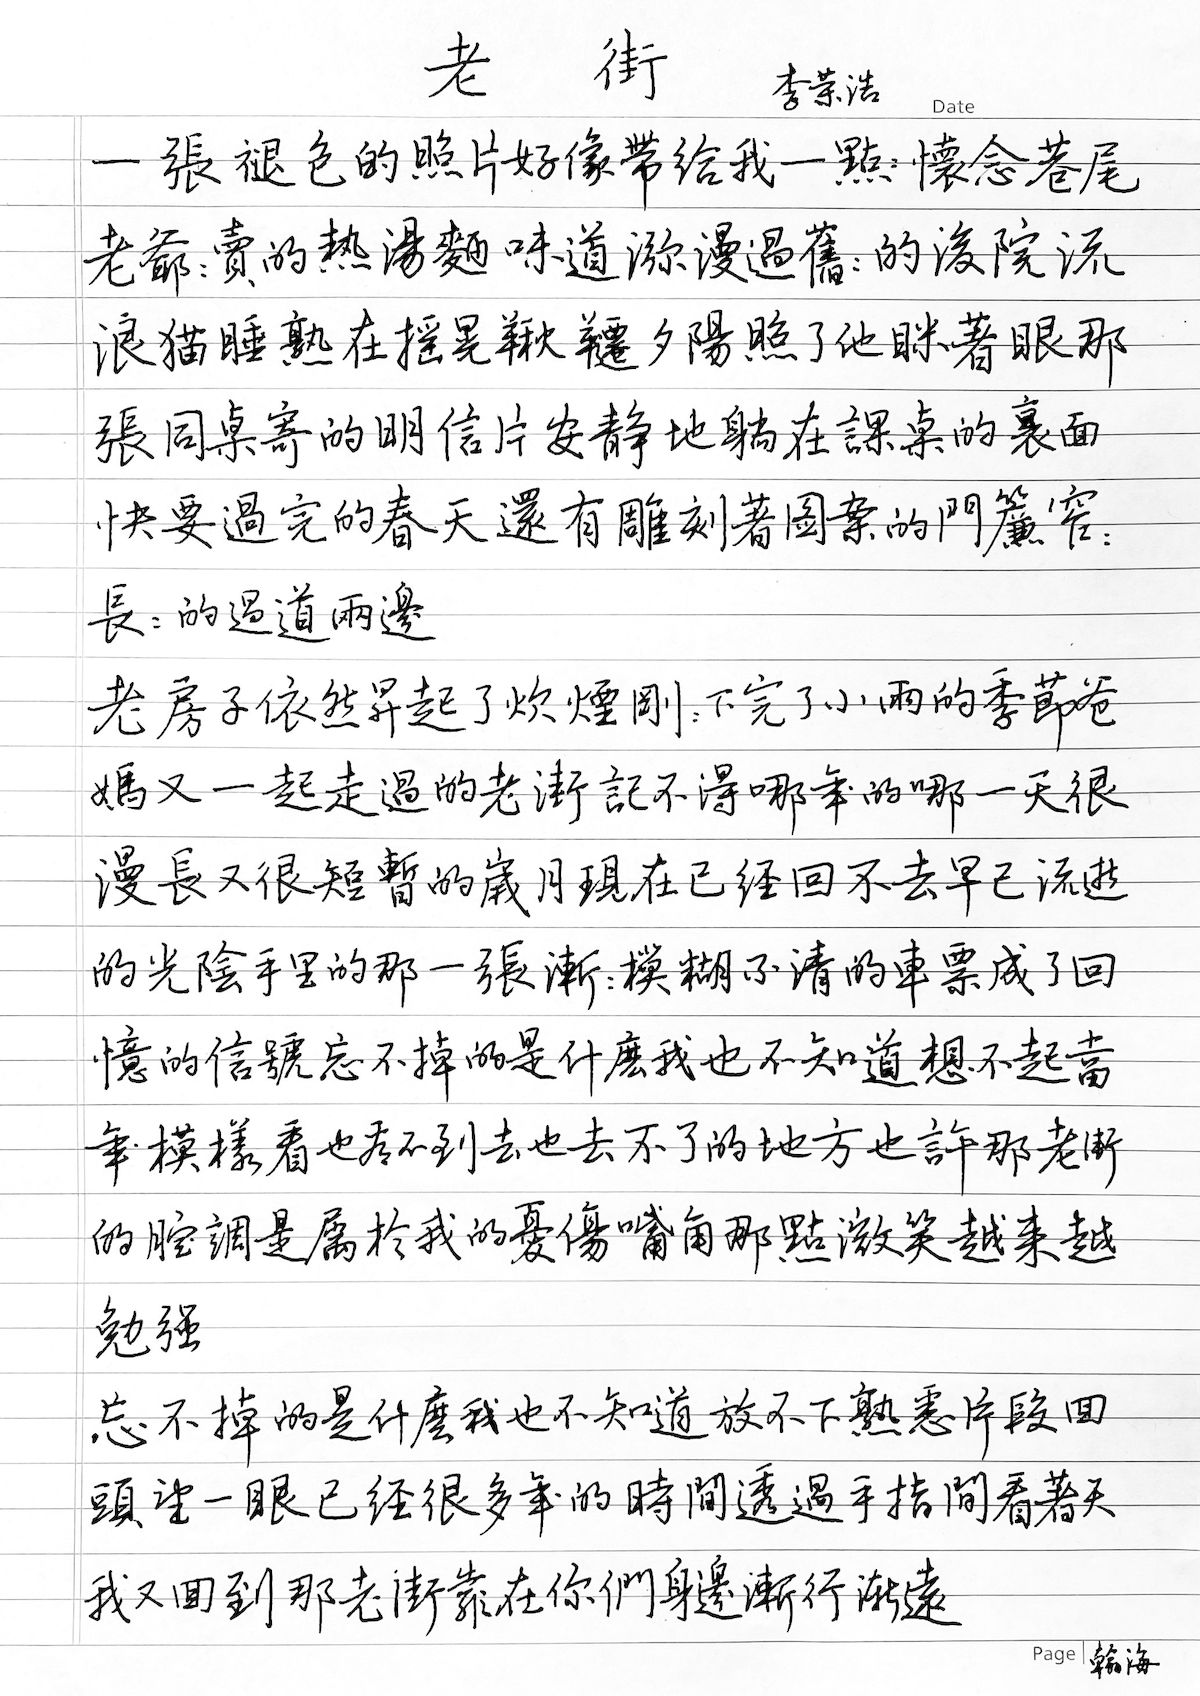 老 街
李荣浩
Date
一張褪色的照片好像帶給我一點：懷念巷尾
老爺：賣的熱湯麵味道瀰漫過舊：的後院流
浪猫睡熟在摇晃鞦韆夕陽照了他眯著眼那
張同桌寄的明信片安静地躺在課桌的裏面
快要過完的春天還有雕刻著圖案的門簾窄：
長：的過道兩邊
老房子依然昇起了炊煙剛：下完了小雨的季節爸
媽又一起走過的老街記不得哪年的哪一天很
漫長又很短暫的歲月現在已經回不去早已流逝
的光陰手里的那一張漸：模糊不清的車票成了回
憶的信號忘不掉的是什麽我也不知道想不起當
年模樣看也看不到去也去不了的地方也許那老街
的腔調是属於我的憂傷嘴角那點微笑越来越
勉强
忘不掉的是什麽我也不知道放不下熟悉片段回
頭望一眼已經很多年的時間透過手指間看著天
我又回到那老街靠在你們身邊漸行漸遠
Page 翰海